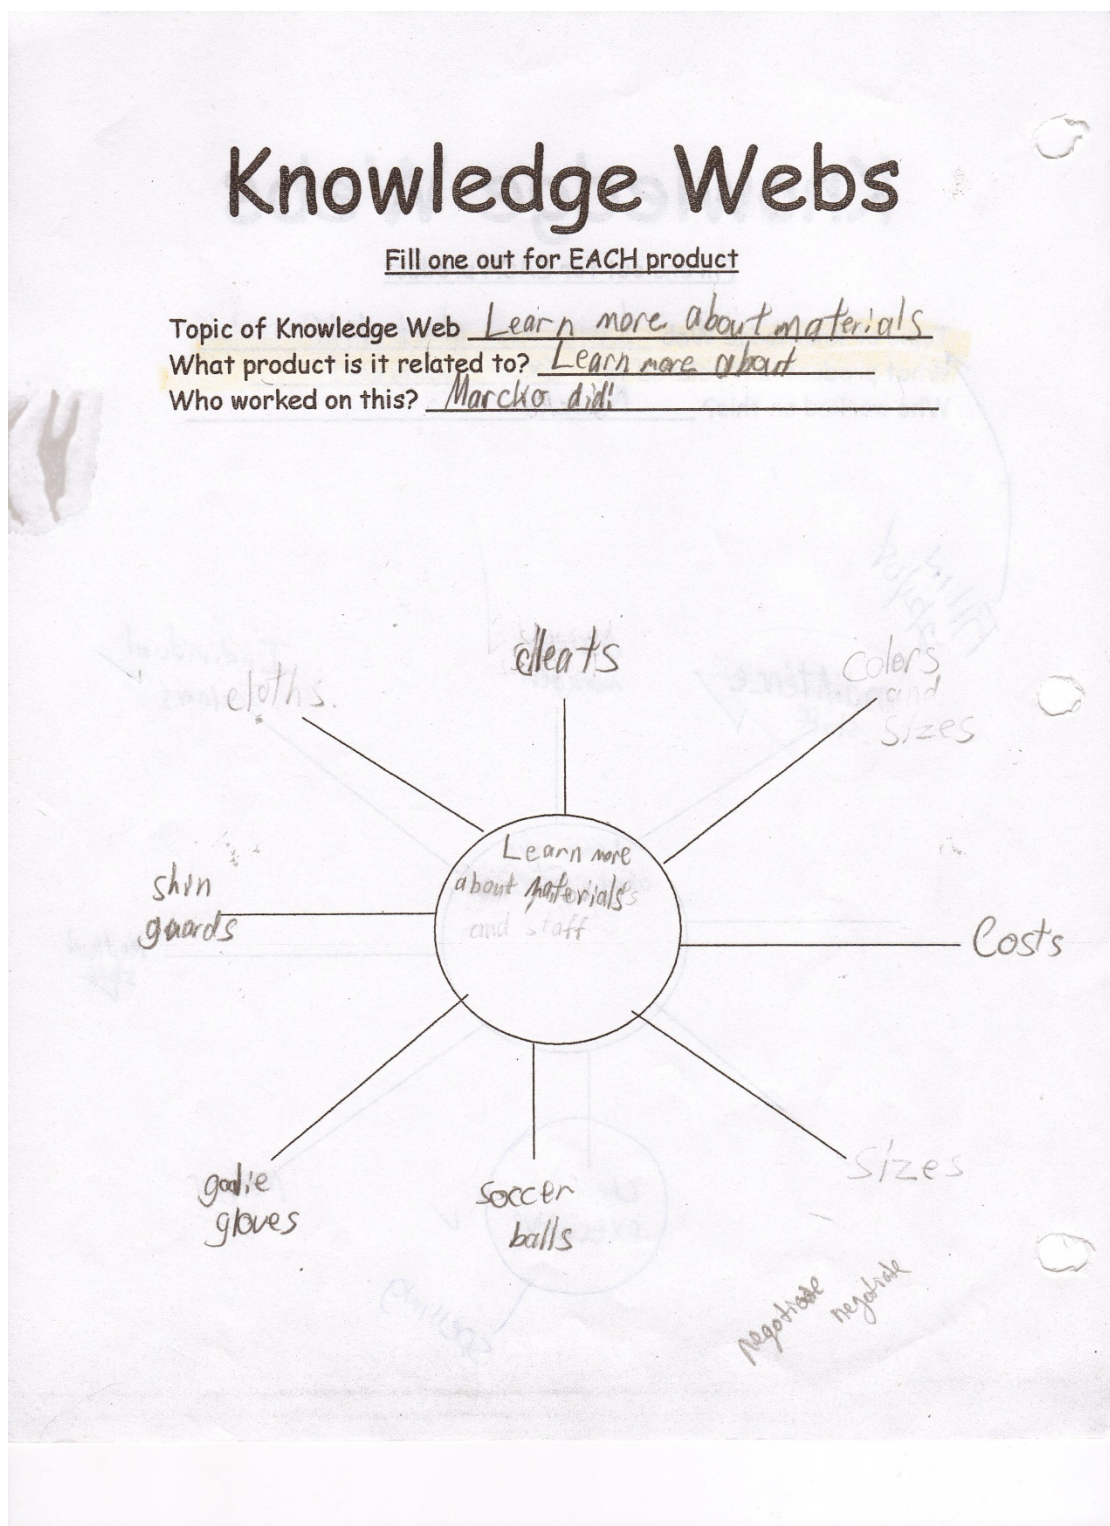 Knowledge Webs
Fill one out for EACH product
Topic of Knowledge Web Learn more about materials
What product is it related to? Learn more about
Who worked on this? Marcko did!
cleats
cloths.
colors
and
sizes
Learn more
about materials
and staff
shin
guards
Costs
goalie
gloves
soccer
balls
Sizes
negotiate
negotiate